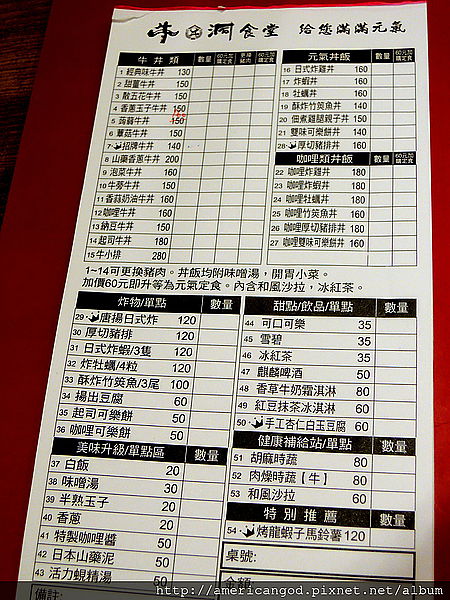 牛 洞食堂 給您滿滿元氣
牛丼類 數量 60元加購定食 更換豬肉 60元加購定食
1 經典味牛丼 130
2 甜薑牛丼 150
3 散五花牛丼 150
4 香蔥玉子牛丼 150
5 蒟蒻牛丼 150
6 蕈菇牛丼 150
7 招牌牛丼 140
8 山藥香蔥牛丼 200
9 泡菜牛丼 160
10 牛蒡牛丼 150
11 香蒜奶油牛丼 160
12 咖哩牛丼 160
13 納豆牛丼 150
14 起司牛丼 180
15 牛小排 280
元氣丼飯 數量 60元加購定食
16 日式炸雞丼 160
17 炸蝦丼 160
18 牡蠣丼 160
19 酥炸竹筴魚丼 140
20 佃煮雞腿親子丼 150
21 雙味可樂餅丼 140
28 厚切豬排丼 160
咖哩類丼飯 數量 60元加購定食
22 咖哩炸雞丼 180
23 咖哩炸蝦丼 180
24 咖哩牡蠣丼 180
25 咖哩竹筴魚丼 160
26 咖哩厚切豬排丼 180
27 咖哩雙味可樂餅丼 160
1~14可更換豬肉。丼飯均附味噌湯，開胃小菜。
加價60元即升等為元氣定食。內含和風沙拉，冰紅茶。
炸物/單點 數量
29 唐揚日式炸 120
30 厚切豬排 120
31 日式炸蝦/3隻 120
32 炸牡蠣/4粒 120
33 酥炸竹筴魚/3尾 100
34 揚出豆腐 60
35 起司可樂餅 50
36 咖哩可樂餅 50
美味升級/單點區 數量
37 白飯 20
38 味噌湯 30
39 半熟玉子 20
40 香蔥 20
41 特製咖哩醬 50
42 日本山藥泥 50
43 活力蜆精湯 50
備註:
甜點/飲品/單點 數量
44 可口可樂 35
45 雪碧 35
46 冰紅茶 35
47 麒麟啤酒 50
48 香草牛奶霜淇淋 80
49 紅豆抹茶冰淇淋 60
50 手工杏仁白玉豆腐 60
健康補給站/單點 數量
51 胡麻時蔬 80
52 肉燥時蔬【牛】 80
53 和風沙拉 60
特別推薦 數量
54 烤龍蝦子馬鈴薯 120
桌號:
金額:
http://americangod.pixnet.net/album